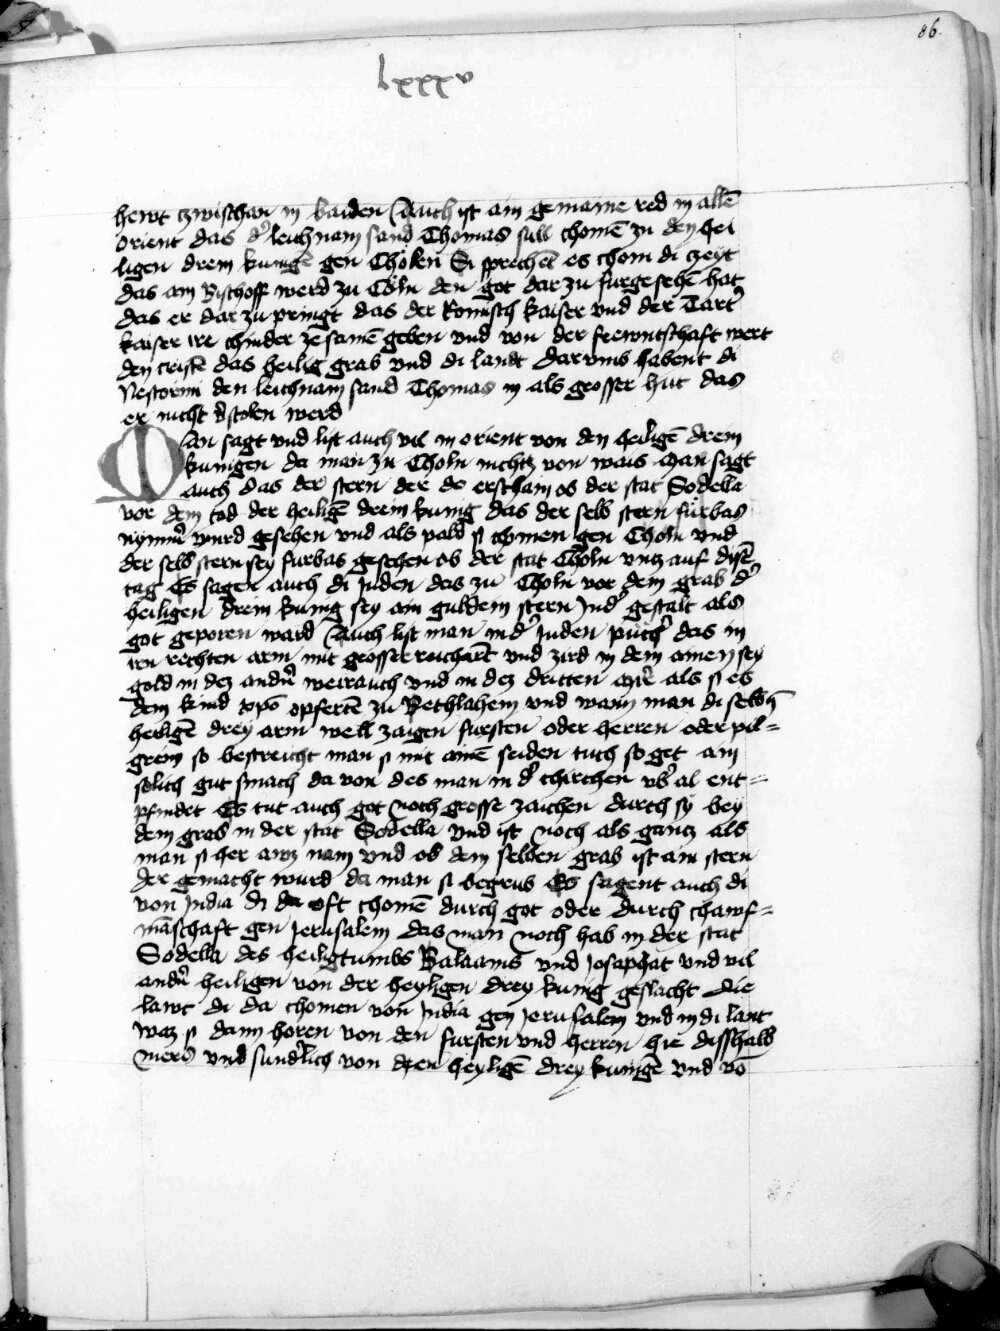 86.
lxxxv
hewt zwischan in baiden Auch ist ain gemaine red in allē
orient das d͛ leichnam sand Thomas sull chomē zu den hei
ligen drein kunigē gen Choln Si sprechēt es chom di zeyt
das ain Bischoff werd zu Cöln den got dar zu furgesehē hat
das er dar zu pringt das der Romisch kaiser und der Tart͛
kaiser ire chinder zesamē geben und von der frewntschaft wert
den cristē das heilig grab und di landt darumb habent di
Nestorini den leichnam sand Thomas in als grosser hut das
er nicht v͛stolen werd
Man sagt und list auch vil in orient von den heiligē drein
kunigen da man zu Choln nichtz von wais Man sagt
auch das der stern der do erscham ob der stat Sodella
vor dem tod der heiligē drein kunig das der selb stern furbas
nymm͛ wurd gesehen und als pald si chomen gen Choln und
der selb stern sey furbas gesehen ob der stat Choln untz auf disē
tag Es sagen auch di Juden das zu Choln vor dem grab d͛
heiligen drein kunig sey ain guldein stern in d͛ gestalt als
got geporen ward Auch list man in d͛ Juden puch͛ das in
irn rechten arm mit grosser reichait und zird in dem ainen sey
gold in dez and͛n weirauch und in dez dritten mirr als si es
dem kind xpō opfertē zu Bethlahem und wann man di selbn̄
heiligē drey arm well zaigen fursten oder herren oder pil=
grein so bestreicht man si mit ainē seiden tuch so get ain
solich gut smach da von des man in d͛ chirchen ub͛al ent=
pfindet Es tut auch got noch grosse zaichen durch sy bey
dem grab in der stat Sodella und ist noch als gantz als
man si her awz nam und ob dem selben grab ist ain stern
der gemacht wurd da man si begrub Es sagent auch di
von India di da oft chomē durch got oder durch chawf=
māschaft gen Jerusalem das man noch hab in der stat
Sodella des heiligtumbs Balaams und Josaphat und vil
and͛n heiligen von der heyligen drey kunig geslacht Die
lawt di da chomen von India gen Jerusalem und in di lant
waz si dann horen von den fursten und herren hie disshalb
mers und sund͛lich von den heyligē drey kunigē und vō